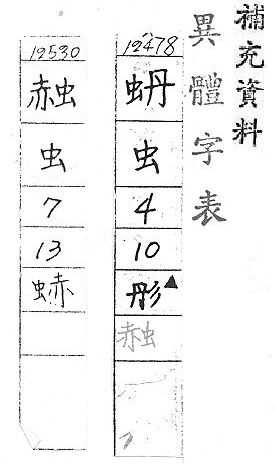 補充資料
異體字表
12478
蚒
虫
4
10
彤▲
赨
12530
赨
虫
7
13